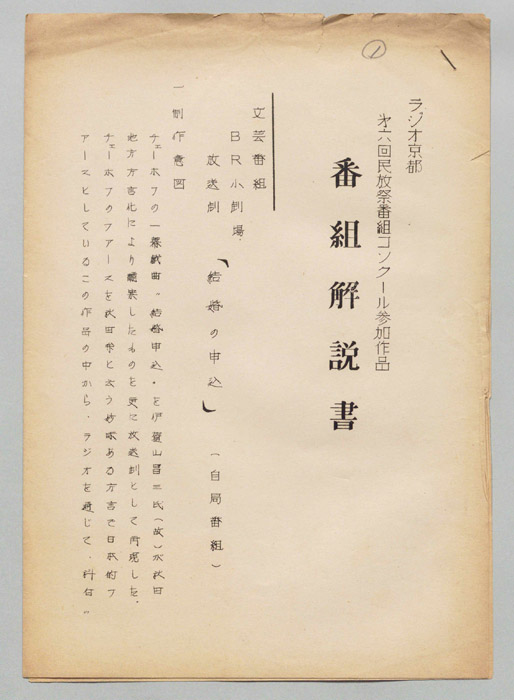 ①
ラジオ京都
第六回民放祭番組コンクール参加作品
番組解説書
文芸番組
BR小劇場
放送劇 「結婚の申込」 (自局番組)
一 制作意図
チェーホフの一幕戯曲“結婚申込”を伊賀山昌三氏(故)が秋田
地方方言化により翻案したものを更に放送劇として再現した。
チェーホフのファースを秋田弁と云う妙味ある方言で日本的フ
アースとしているこの作品の中から、ラジオを通じて、科白“